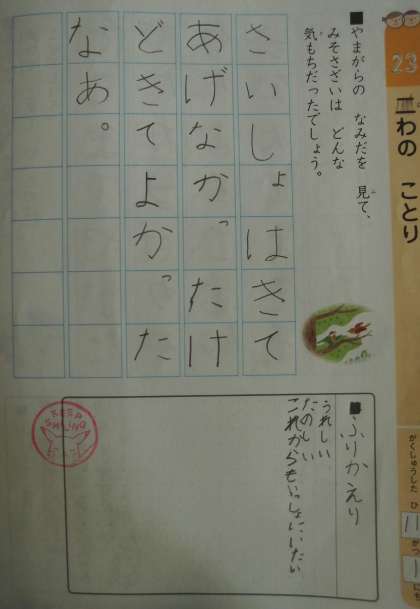 23
二わの ことり
■やまがらの なみだを 見て、
みそさざいは どんな
気もちだったでしょう。
さいしょはきて
あげなかったけ
どきてよかった
なあ。
ふりかえり
うれしい
たのしい
これからもいっしょにいたい
がくしゅうした ひ
11 が
1 に